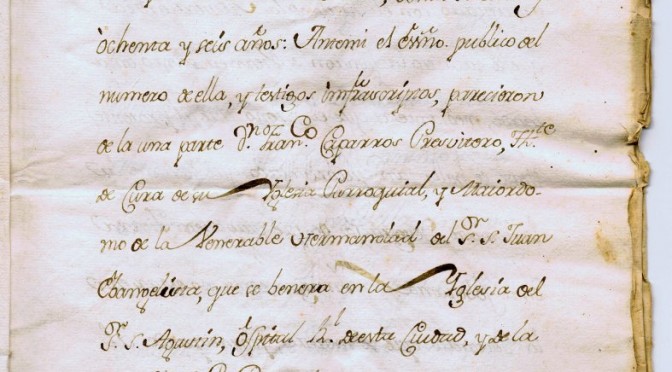 ochenta y seis años: Antemi el esſno. publico del
numero de ella, y testigos infrascriptos, parecieron
de la una parte Dn. Franco. Caparros Presvitero, Thte.
de Cura de su Yglesia Parroquial, y Maiordo-
mo de la Venerable Hermandad del Sr. S. Juan
Evangelista, que se benera en la Yglesia del
Sr. S. Agustin, ospital Rl. de esta Ciudad, y de la